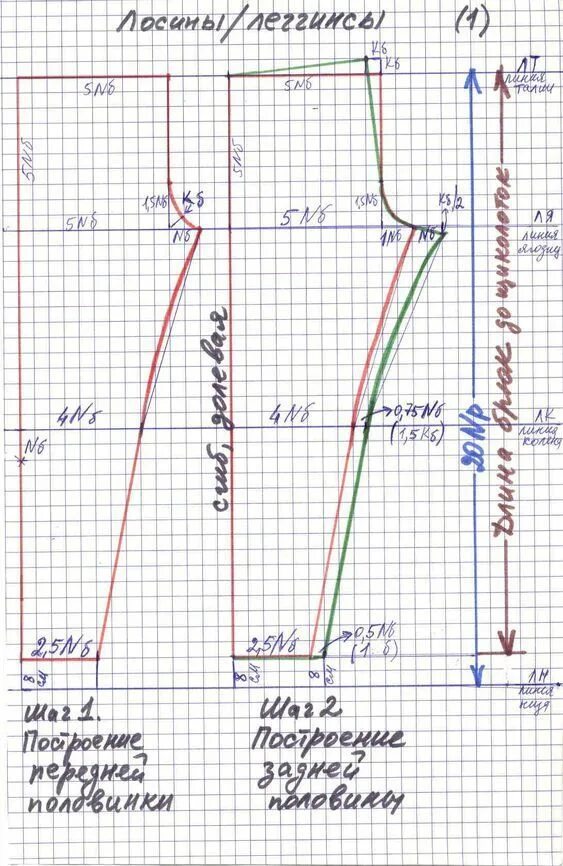 Лосины/леггинсы (1)
ЛТ
линия
талии
Кб
Кб
5Nб
5Nб
5Nб
5Nб
1,5Nб
Кб
1,5Nб
Кб/2
5Nб
Nб
5Nб
1Nб
Nб
ЛЯ
линия
ягодиц
сгиб, долевая
20Nр
Длина брюк до щиколоток
4Nб
4Nб
0,75Nб
(1,5Кб)
ЛК
линия
колена
Nб
2,5Nб
2,5Nб
0,5Nб
8
см
8
см
8
см
ЛН
линия
низа
Шаг 1.
Построение
передней
половинки
Шаг 2
Построение
задней
половины